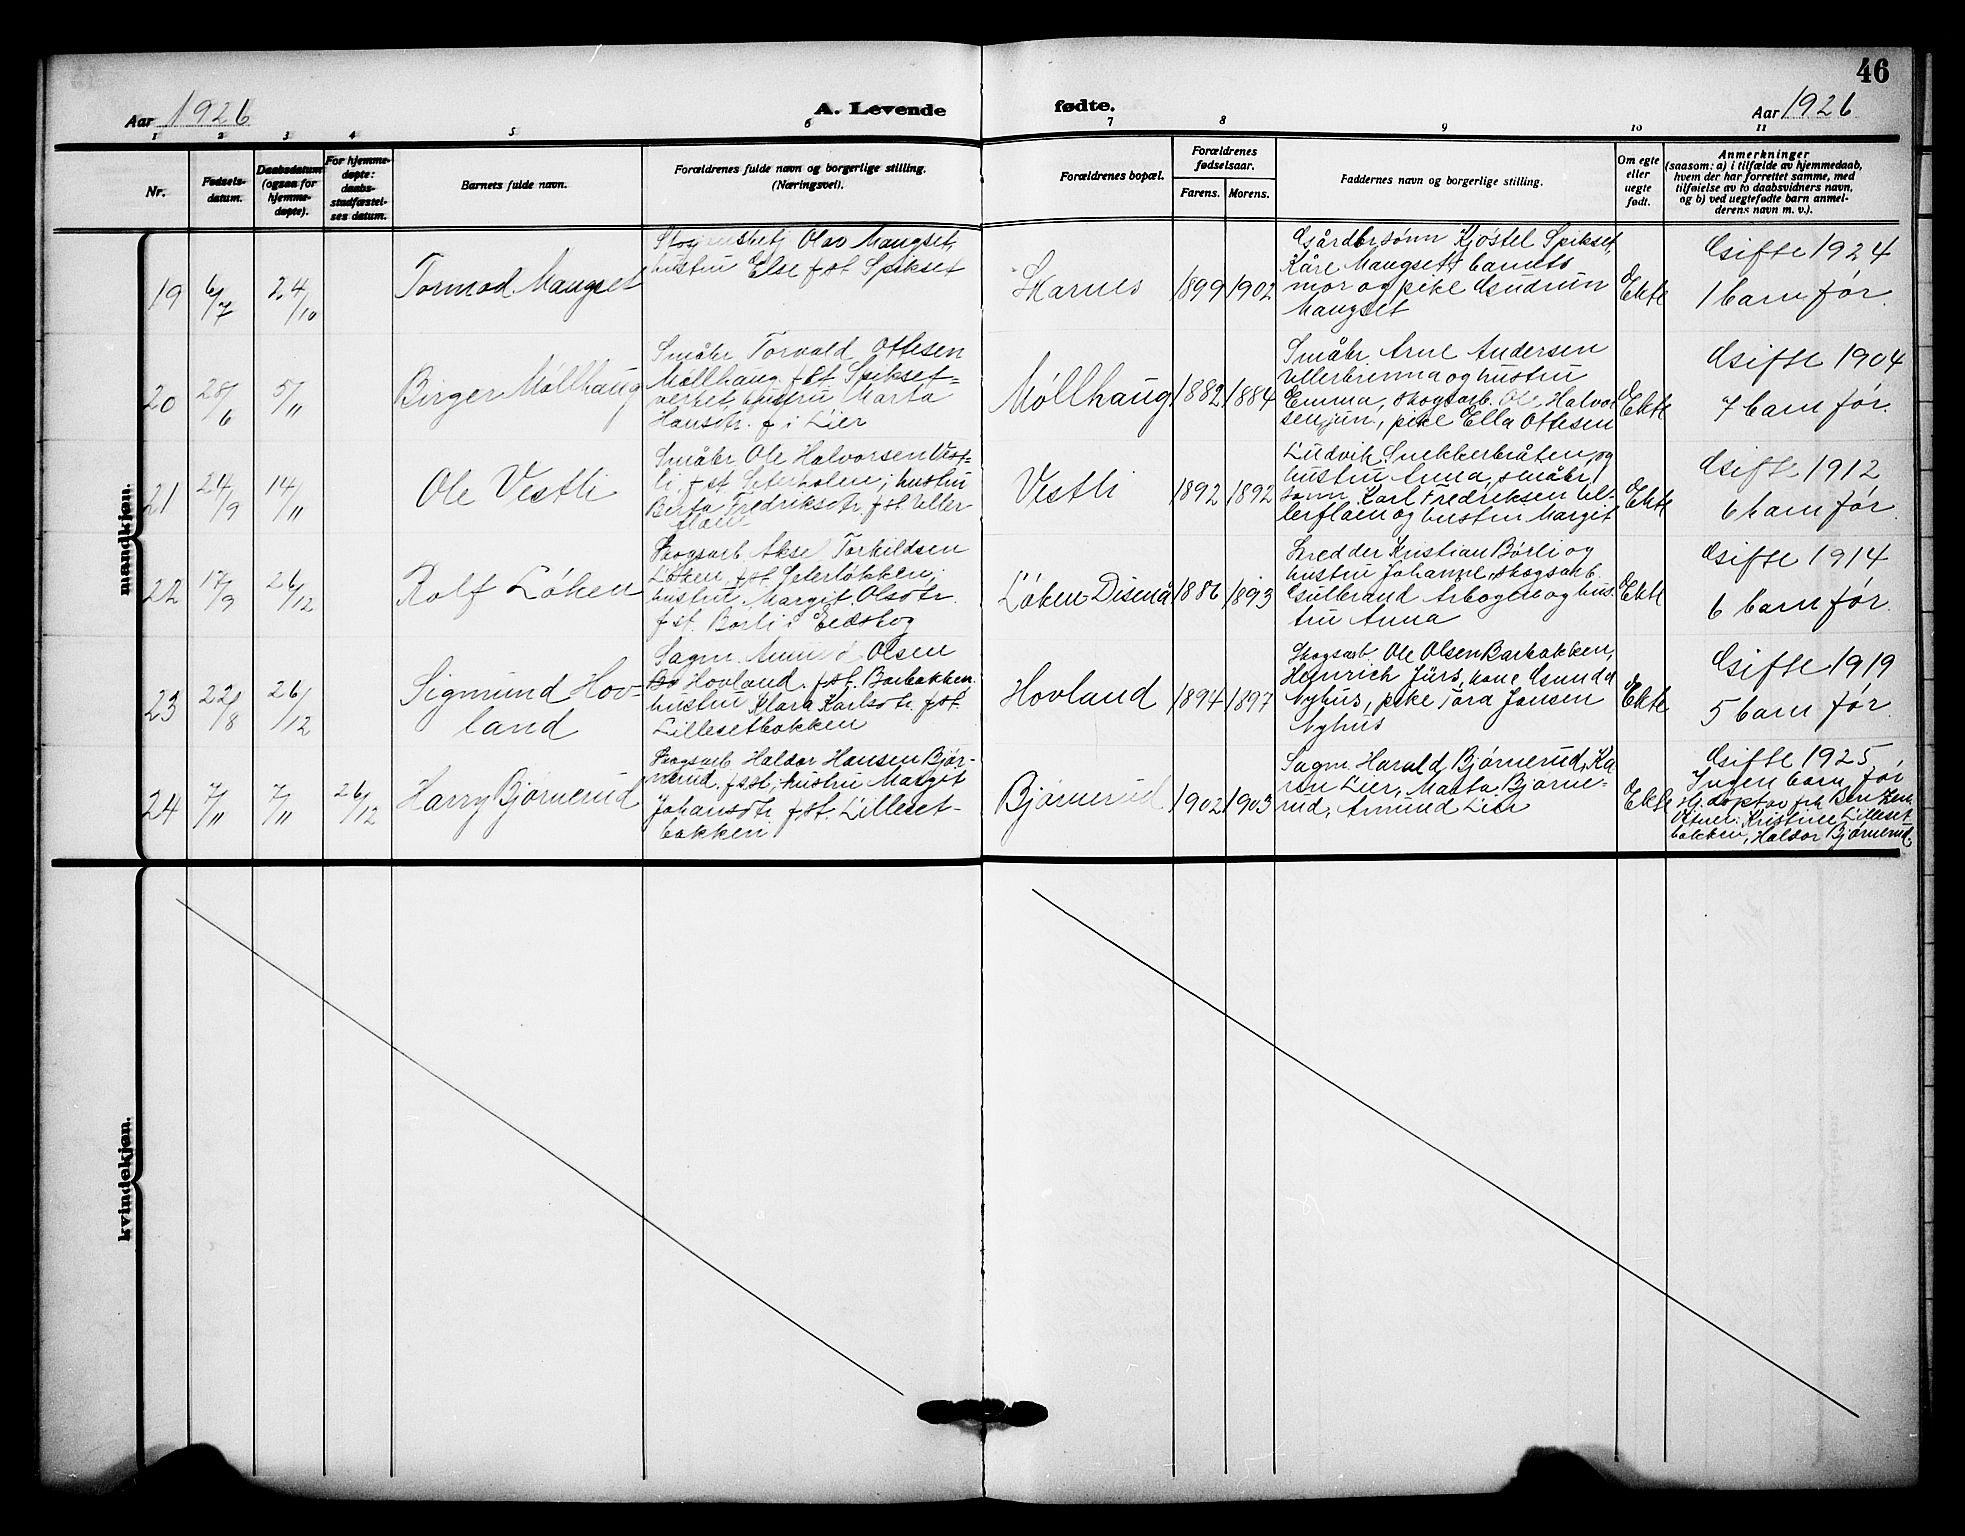 46
Aar 1926
A. Levende
fødte.
Aar 1926
1 2 3 4 5 6 7 8 9 10 11
Nr.
Fødsels-
datum.
Daabsdatum
(ogsaa for
hjemme-
døpte).
For hjemme-
døpte:
daabs-
stadfæstel-
ses datum.
Barnets fulde navn.
Forældrenes fulde navn og borgerlige stilling.
(Næringsvei).
Forældrenes bopæl.
Forældrenes
fødselsaar.
Farens. Morens.
Faddernes navn og borgerlige stilling.
Om egte
eller
uegte
født.
Anmerkninger
(saasom: a) i tilfælde av hjemmedaab,
hvem der har forrettet samme, med
tilføielse av to daabsvidners navn,
og b) ved uegtefødte barn anmel-
derens navn m. v.).
mandkjøn.
19
6/7
24/10
Tormod Mangset
Olav Mangset,
hustru Else fst Spikset
Skarnes
1899 1902
Gårdbrsønn Kjøstel Spikset,
Kåre Mangset, barnets
mor og pike Gudrun
Mangset
Ekte
Gifte 1924
1 barn før.
20
28/6
5/11
Birger Møllhaug
Småbr Torvald Ottesen
Møllhaug fst Spikset-
verket, hustru Marta
Hansdtr. f i Lier
Møllhaug
1882 1884
Småbr Arne Andersen
Ullerbrenna og hustru
Emma, skogsarb. Ole Halvor
sen jun, pike Ella Ottesen
Ekte
Gifte 1904
7 barn før.
21
24/9
14/11
Ole Vestli
Småbr Ole Halvorsen Vest-
li fst Seterholen, hustru
Berta Fredriksdtr. fst Uller
flaen
Vestli
1892 1892
Ludvik Snekkerbråten og
hustru Anna, småbr.
sønn Karl Fredriksen Ul-
lerflaen og hustru Margit
Ekte
Gifte 1912
6 barn før
22
17/9
26/12
Rolf Løken
Skogsarb Aksel Torkildsen
Løken fst. Seterløkken,
hustru Margit Olsdtr
fst. Børli i Eidskog
Løken Disenå
1886 1893
Skredder Kristian Børli og
hustru Johanne, skogsarb
Gulbrand Arbogen og hus.
tru Anna
Ekte
Gifte 1914
6 barn før
23
22/8
26/12
Sigmund Hov-
land
Sagm. Amund Olsen
Hovland fst. Barbakken,
hustru Klara Karlsdtr. fst.
Lillesetbakken
Hovland
1894 1897
Skogsarb. Ole Olsen Barbakken,
Heinrich Jürs, kone Gunda
Nyhus, pike Tora Jansen
Nyhus
Ekte
Gifte 1919
5 barn før
24
7/11
7/11
26/12
Harry Bjørnerud
Skogsarb Haldor Hansen Bjør-
nerud. fsst, hustru Margit
Johansdtr fst. Lilleset-
bakken
Bjørnerud
1902 1903
Sagm. Harald Bjørnerud, Ka
ren Lier, Marta Bjørne-
rud, Amund Lier
Ekte
Gifte 1925
Ingen barn før
Hj.døpt av frk
Vitner: Kristine Lilleset-
bakken, Haldor Bjørnerud
kvindekjøn.